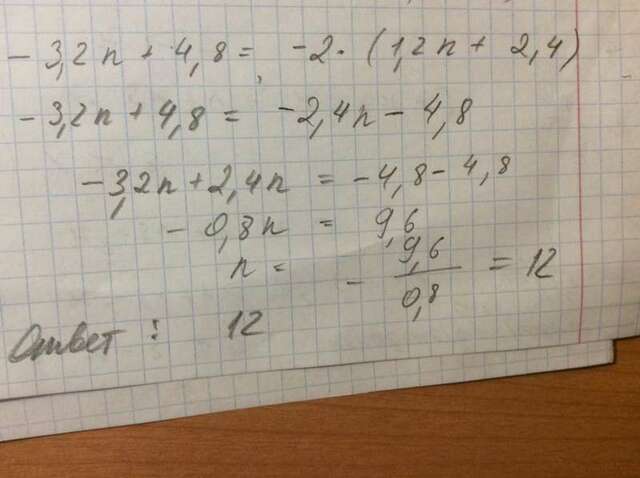 - 3,2n + 4,8 = -2 · (1,2n + 2,4)
- 3,2n + 4,8 = -2,4n - 4,8
- 3,2n + 2,4n = -4,8 - 4,8
- 0,8n = 9,6
n = - 9,6/0,8 = 12
Ответ : 12